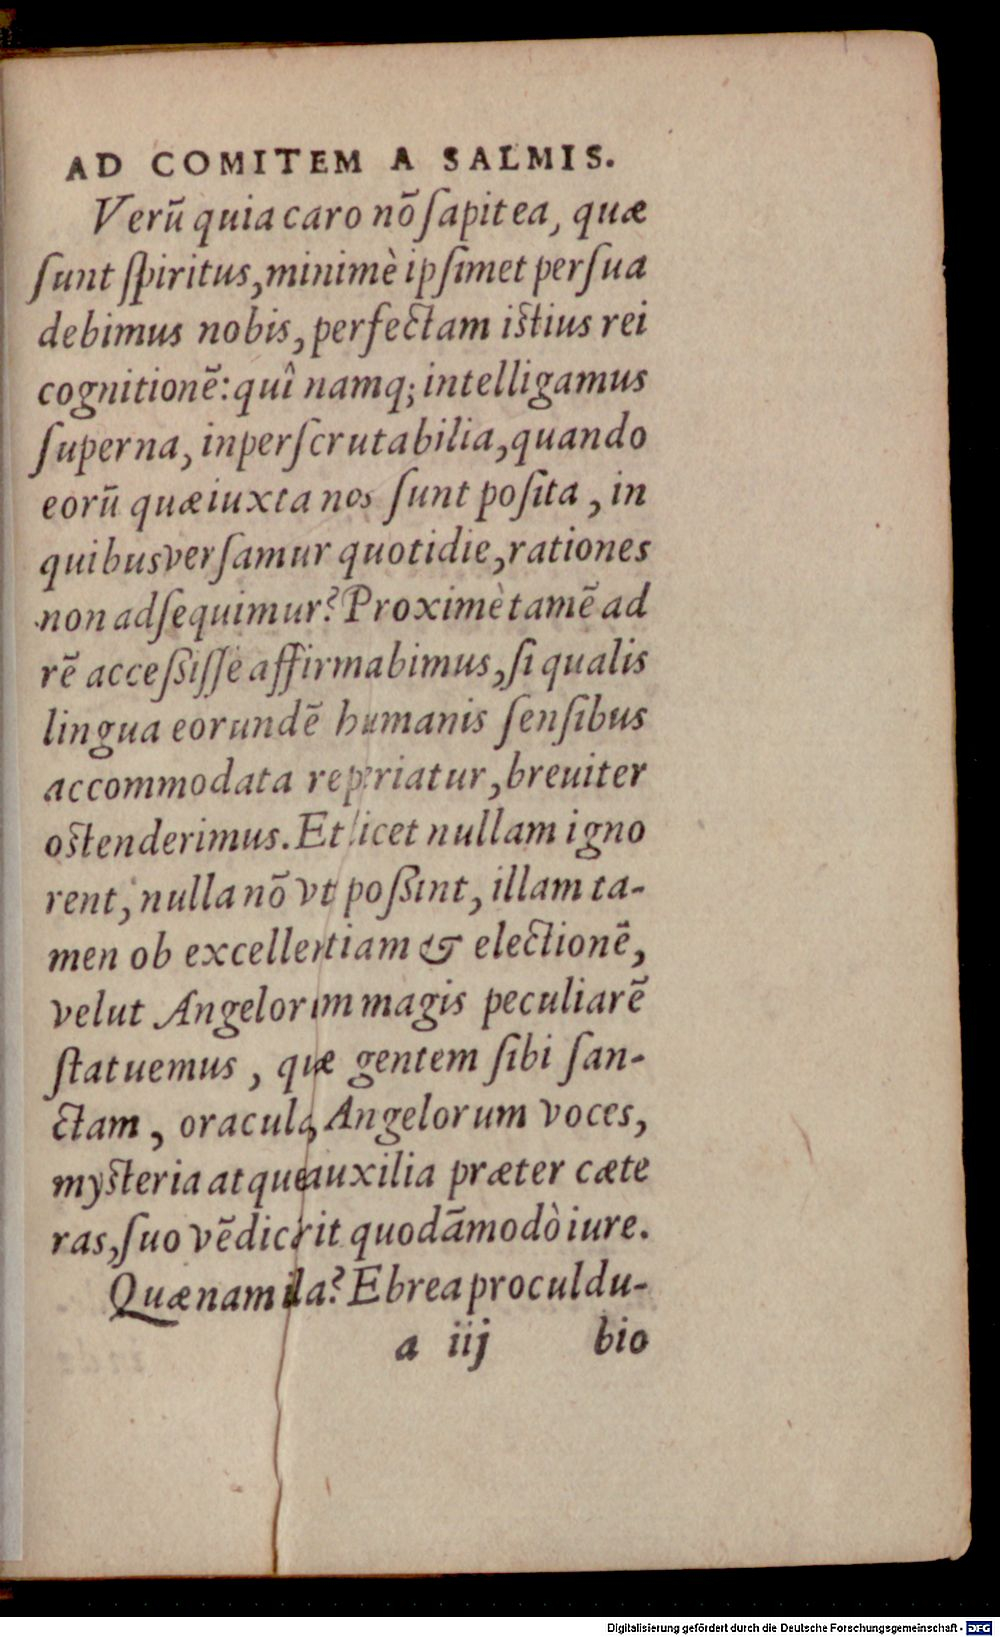 AD COMITEM A SALMIS.
Verũ quia caro nõ ſapit ea, quæ
ſunt ſpiritus, minimè ipſimet perſua
debimus nobis, perfectam iſtius rei
cognitionẽ: quî namq; intelligamus
ſuperna, inperſcrutabilia, quando
eorũ quæ iuxta nos ſunt poſita, in
quibus verſamur quotidie, rationes
non adſequimur? Proximè tamẽ ad
rẽ acceßiſſe affirmabimus, ſi qualis
lingua eorundẽ humanis ſenſibus
accommodata reperiatur, breuiter
oſtenderimus. Et licet nullam igno
rent, nulla nõ vt poßint, illam ta-
men ob excellentiam & electionẽ,
velut Angelorum magis peculiarẽ
ſtatuemus, quæ gentem ſibi ſan-
ctam, oracula, Angelorum voces,
myſteria atque auxilia præter cæte
ras, ſuo vẽdicárit quodãmodò iure.
Quænam illa? Ebrea procul du-
a iij bio
Digitalisierung gefördert durch die Deutsche Forschungsgemeinschaft - DFG